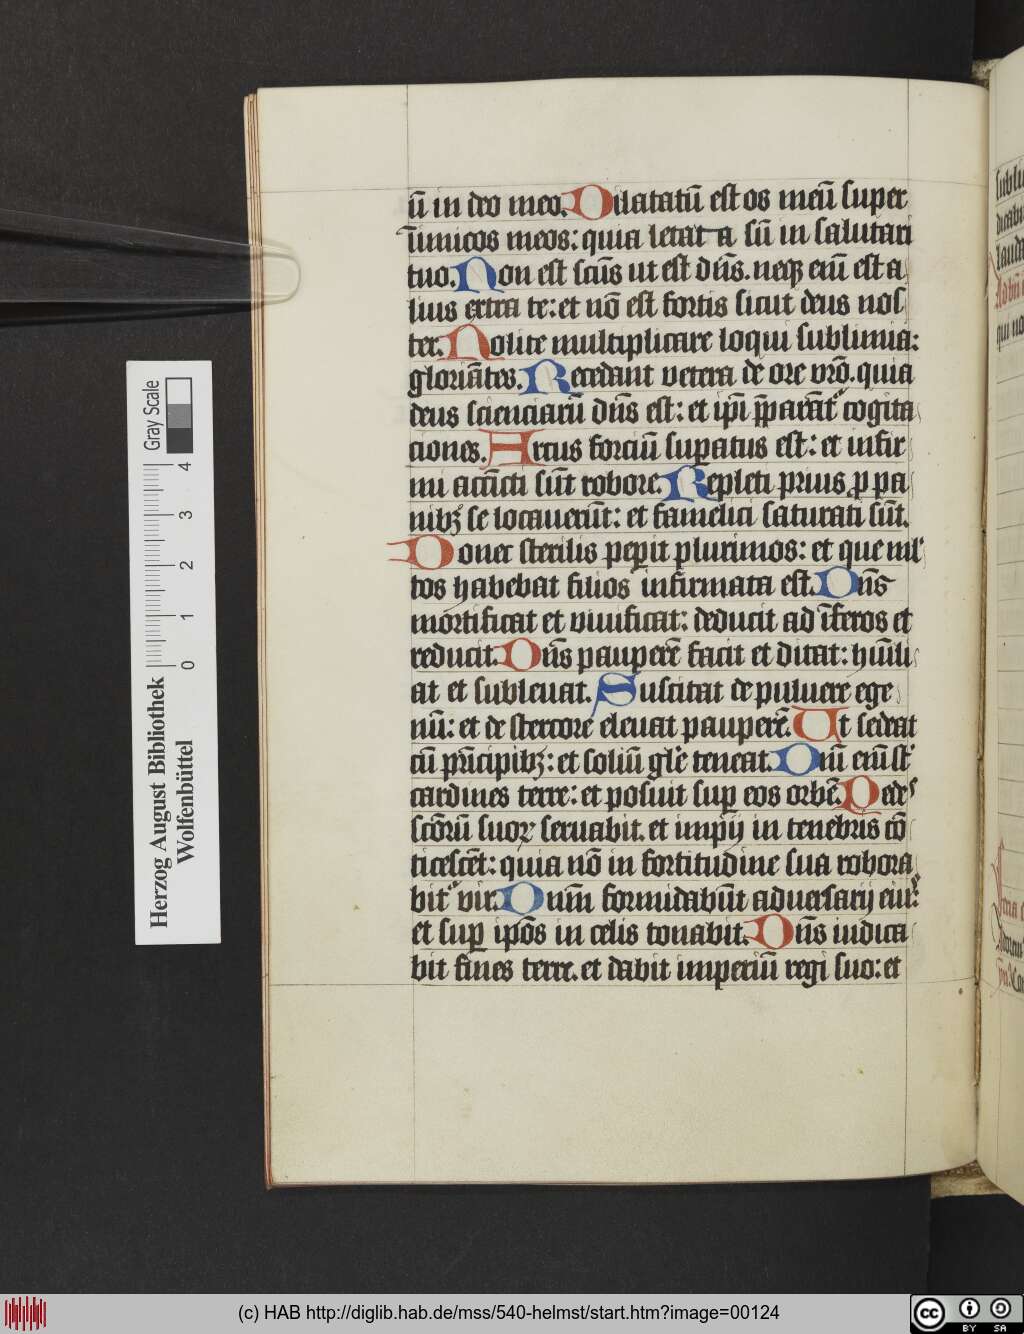 ū in deo meo. Dilatatū est os meū super
īimicos meos: quia letata sū in salutari
tuo. Non est scūs ut est dn̄s. neqꝫ em̄ est a
lius extra te: et nō est fortis sicut deus nos
ter. Nolite multiplicare loqui sublimia:
gloriātes. Recedant vetera de ore vr̄o. quia
deus scienciarū dn̄s est: et ip̄i p̄parāt᷑ cogita
ciones. Arcus forciū suꝑatus est: et infir
mi accīcti sūt robore. Repleti prius ꝓ pa
nibꝫ se locauerūt: et famelici saturati sūt.
Donec sterilis peꝑit plurimos: et que ml̓
tos habebat filios infirmata est. Dn̄s
mortificat et viuificat: deducit ad īferos et
reducit. Dn̄s pauperē facit et ditat: hūili
at et subleuat. Suscitat de puluere ege
nū: et de stercore eleuat pauperē. Ut sedeat
cū pͥncipibꝫ: et soliū gl̓e teneat. Dn̄i em̄ st̄
cardines terre: et posuit suꝑ eos orbē. Pedes
scōrū suoꝝ seruabit. et impij in tenebris cō
ticescēt: quia nō in fortitudine sua robora
bit᷑ vir. Dnm̄ formidabūt aduersarij eiꝰ:
et suꝑ ip̄os in celis tonabit. Dn̄s iudica
bit fines terre. et dabit imperiū regi suo: et
subli
dicabi
laud
Ad
qui no
Gray Scale
4
3
2
1
0
Herzog August Bibliothek
Wolfenbüttel
(c) HAB http://diglib.hab.de/mss/540-helmst/start.htm?image=00124
cc BY SA